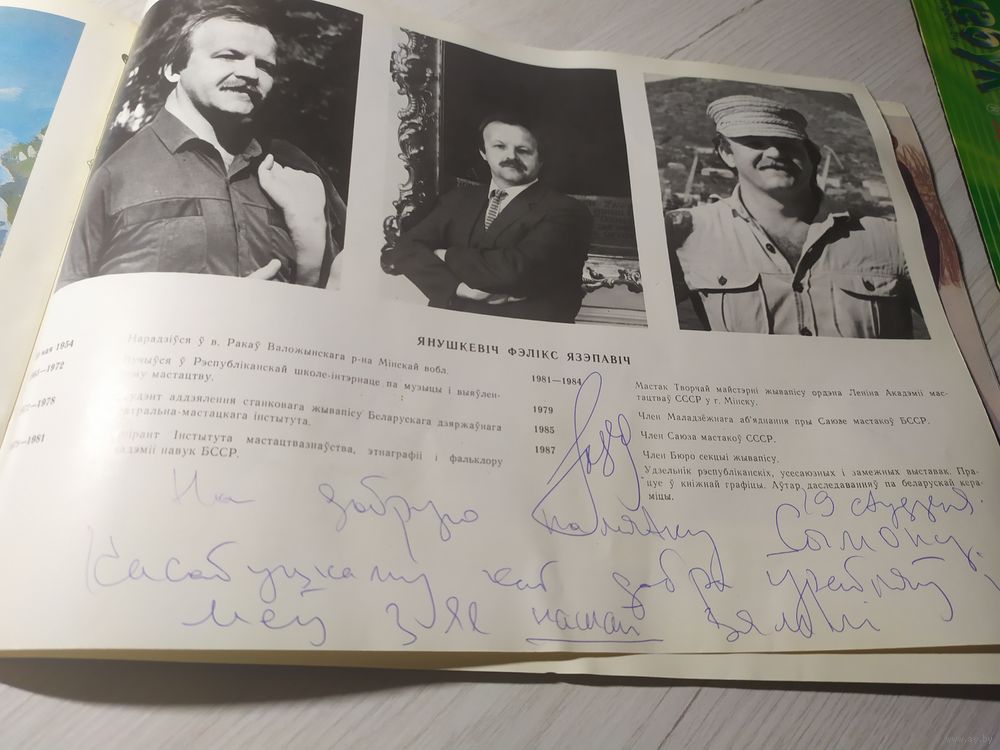 ЯНУШКЕВІЧ ФЭЛІКС ЯЗЭПАВІЧ
мая 1954
Нарадзіўся ў в. Ракаў Валожынскага р-на Мінскай вобл.
—1972
Вучыўся ў Рэспубліканскай школе-інтэрнаце па музыцы і выяўлен-
мастацтву.
—1978
аддзялення станковага жывапісу Беларускага дзяржаўнага
тэатральна-мастацкага інстытута.
—1981
Аспірант Інстытута мастацтвазнаўства, этнаграфіі і фальклору
Акадэміі навук БССР.
1981—1984
Мастак Творчай майстэрні жывапісу ордэна Леніна Акадэміі мас-
тацтваў СССР у г. Мінску.
1979
Член Маладзёжнага аб'яднання пры Саюзе мастакоў БССР.
1985
Член Саюза мастакоў СССР.
1987
Член Бюро секцыі жывапісу.
Удзельнік рэспубліканскіх, усесаюзных і замежных выставак. Пра-
цуе ў кніжнай графіцы. Аўтар даследаванняў па беларускай кера-
міцы.
19 студзеня
На добрую памятку Сымону
каб добра
нашай зямлі
www.ay.by